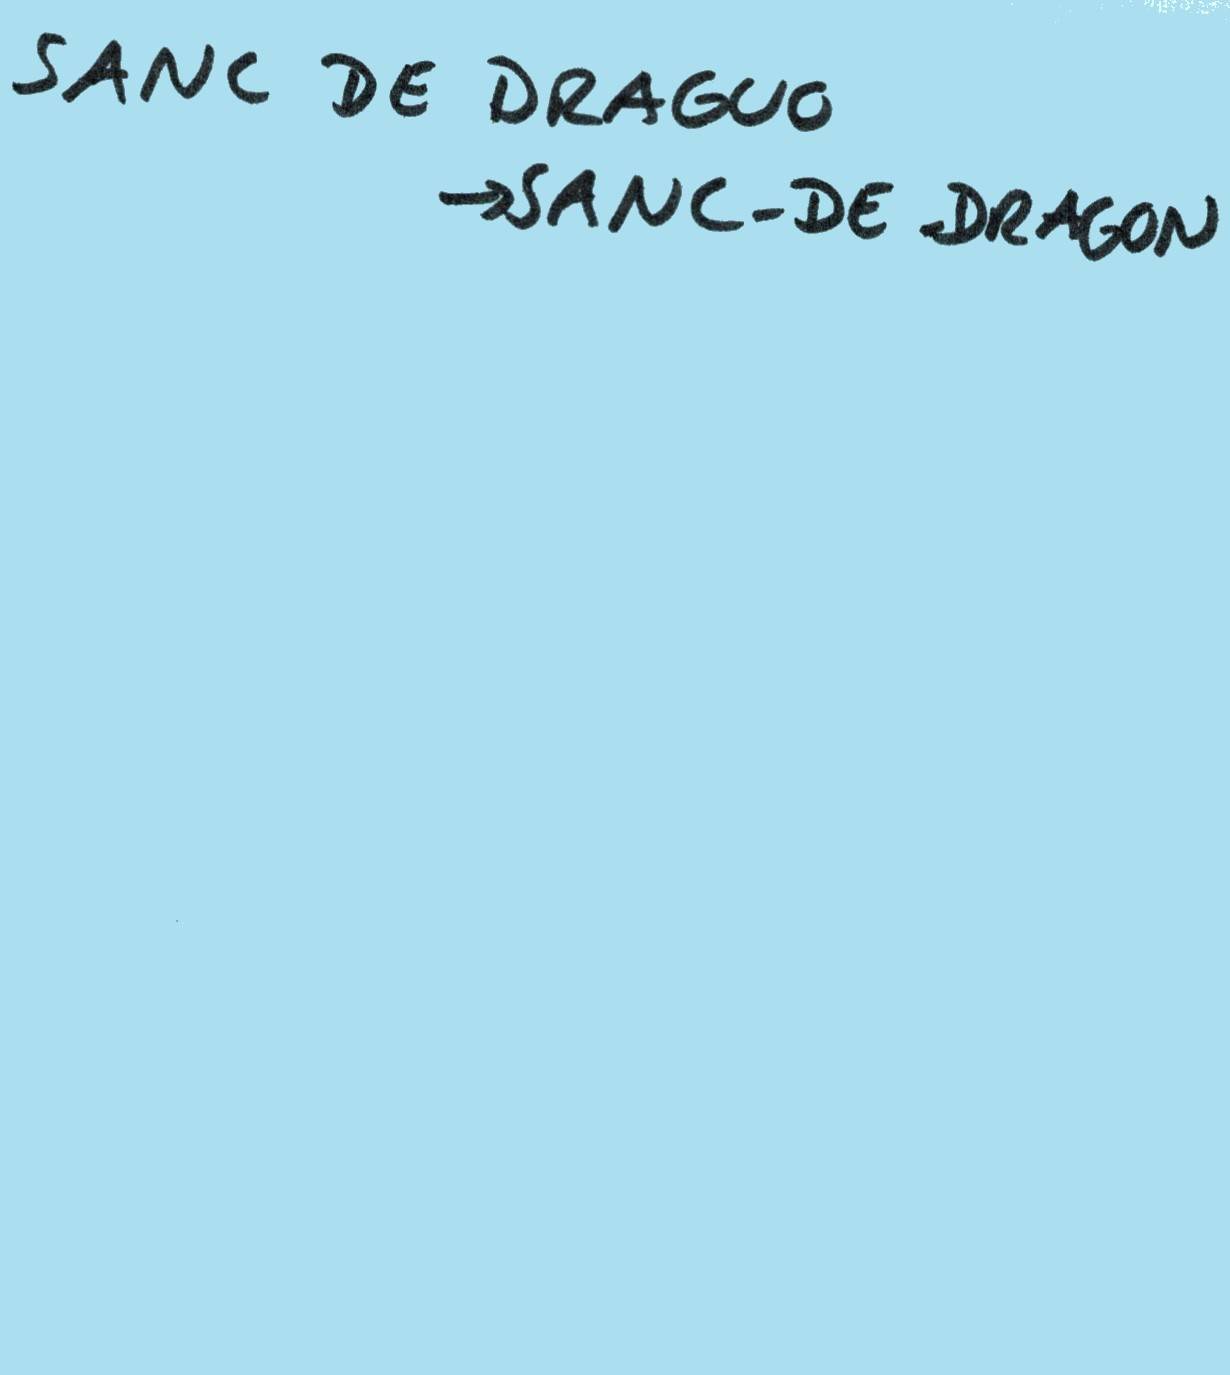 SANC DE DRAGUO
→SANC-DE DRAGON